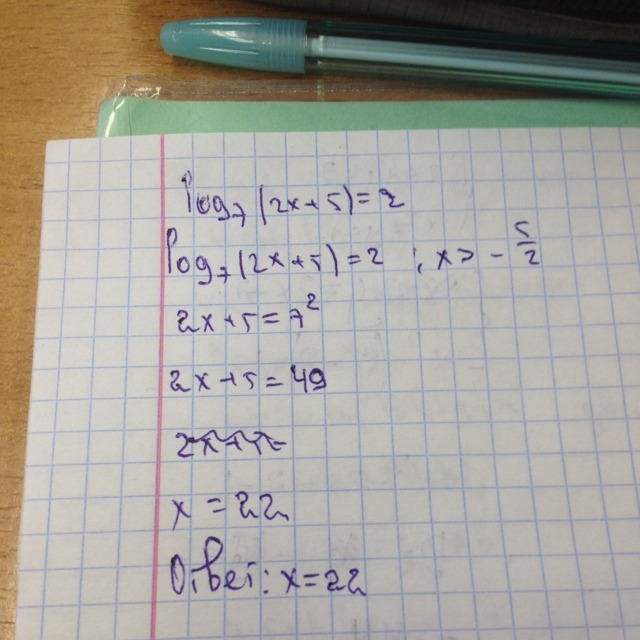 log₇(2x+5)=2
log₇(2x+5)=2 ; x > -5/2
2x+5=7²
2x+5=49
x=22
Ответ: x=22